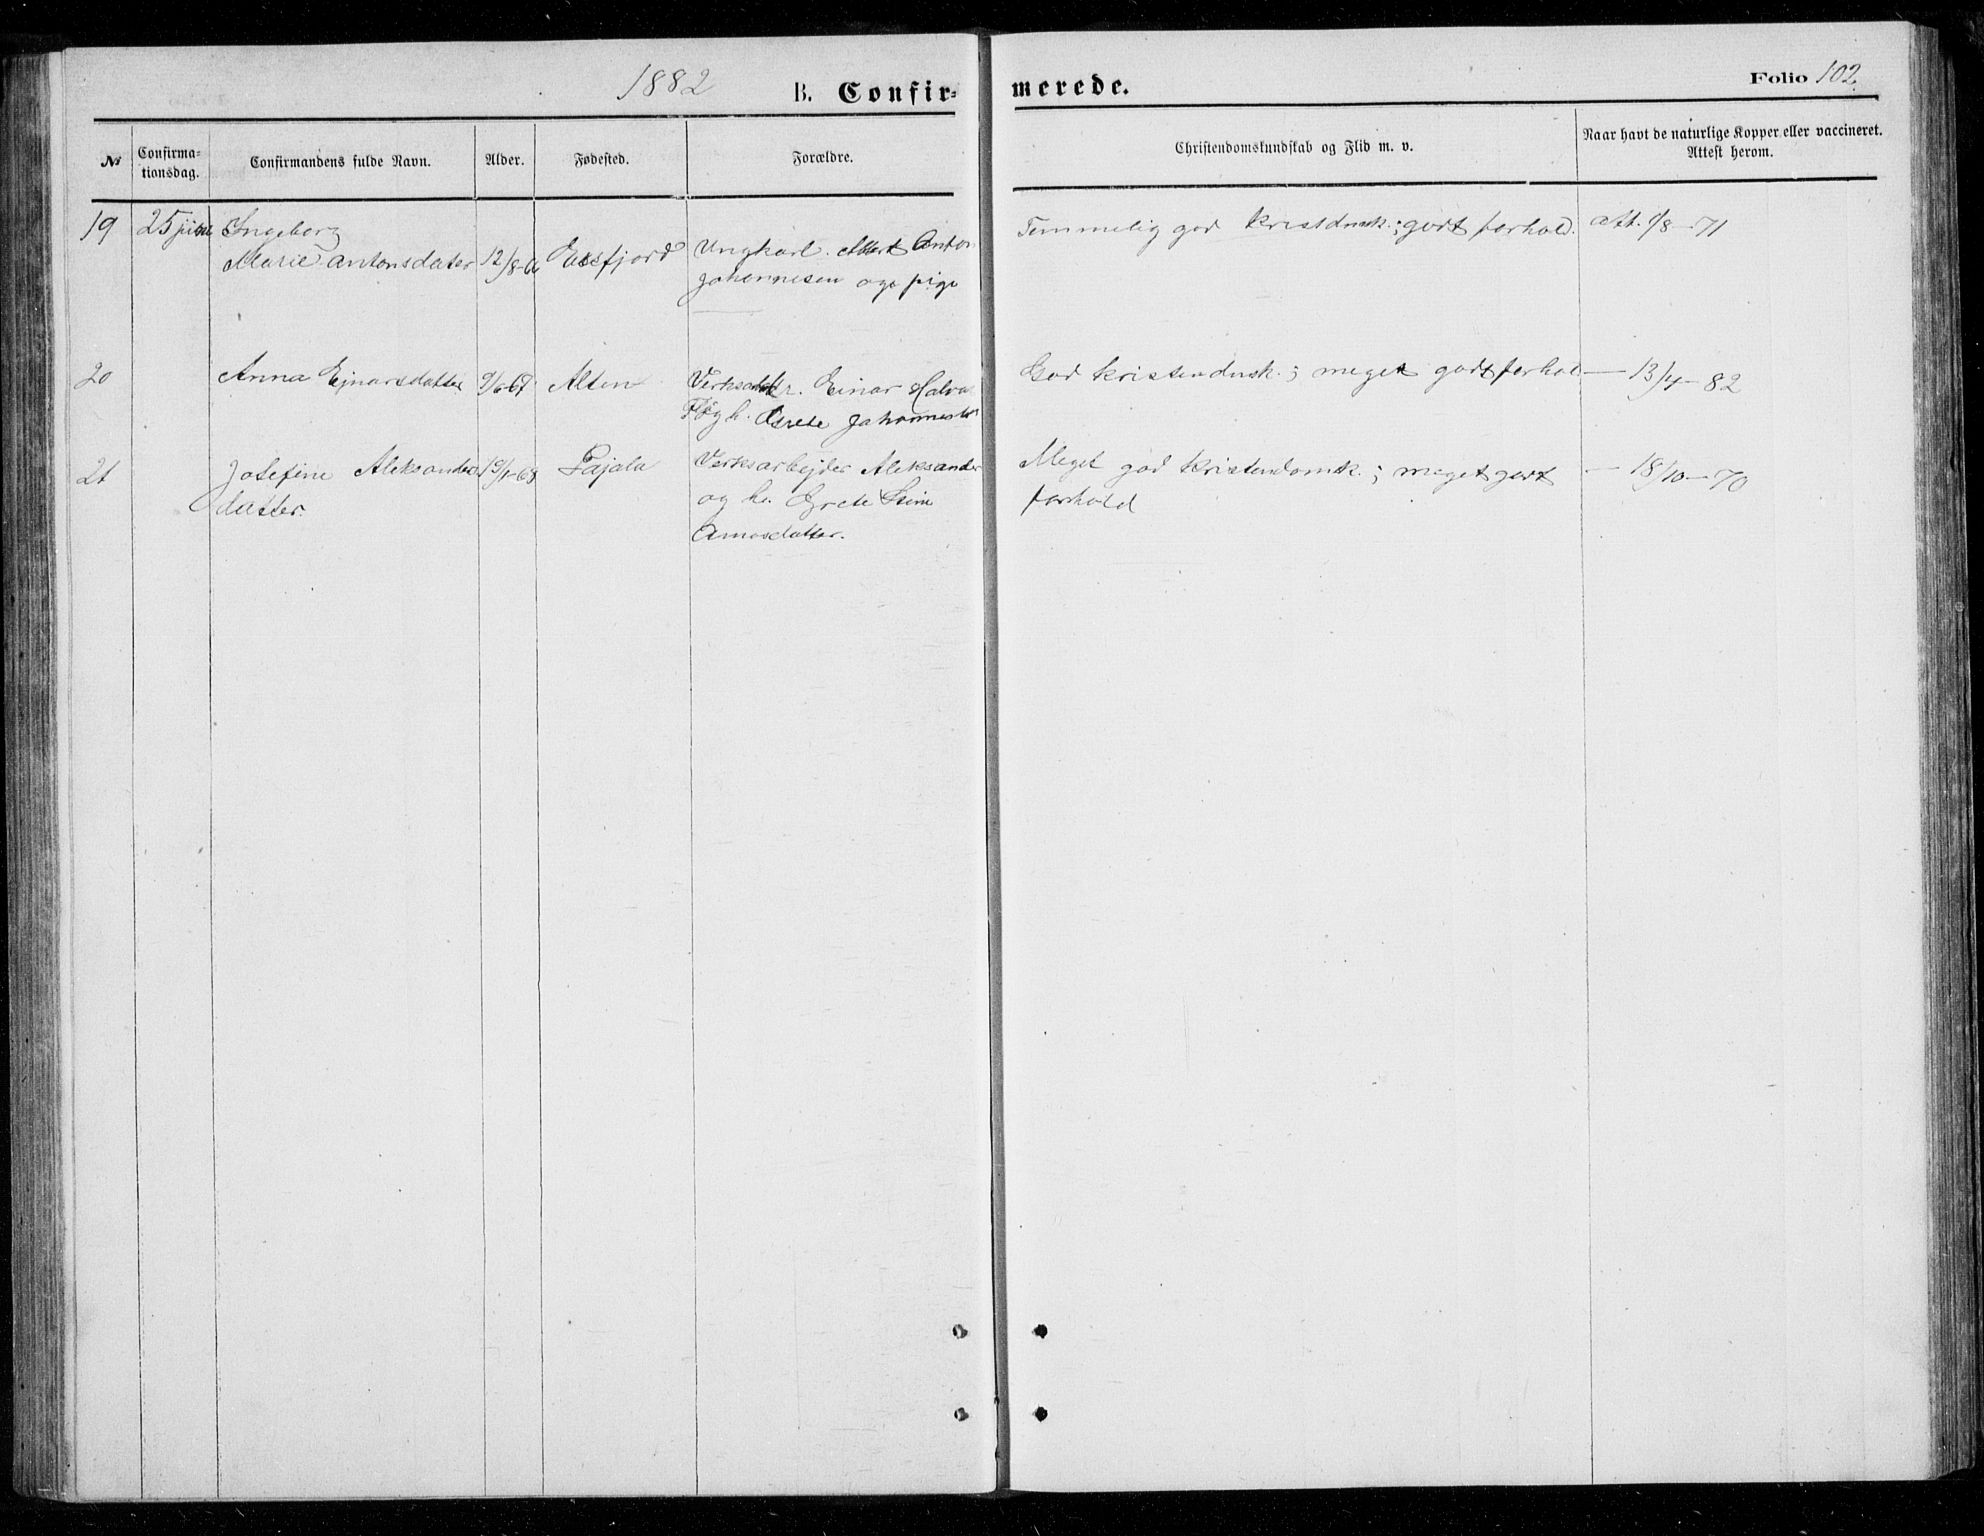 1882
B. Confir=
merede.
Folio 102.
№
Confirma=
tionsdag.
Confirmandens fulde Navn.
Alder.
Fødested.
Forældre.
Christendomskundskab og Flid m. v.
Naar havt de naturlige Kopper eller vaccineret.
Attest herom.
19 25 juni Ingeborg
Marie Antonsdater 12/8-6 fjord Ungkarl Anton
Johannesen og pige
Temmelig god kristdmsk.; godt forhold. att. /8-71
20 Anna Ejnarsdatter 9/6-67 Alten Einar Halvo
og h. Grete Johannes
God kristendmsk.; meget godt forhol — 13/4-82
21 Josefine Aleksanders 19/1-68 Pajala Verksarbejder Aleksander
datter. og h. Grete Stina
Amosdatter.
Meget god kristendomsk.; meget godt — 18/10-70
forhold